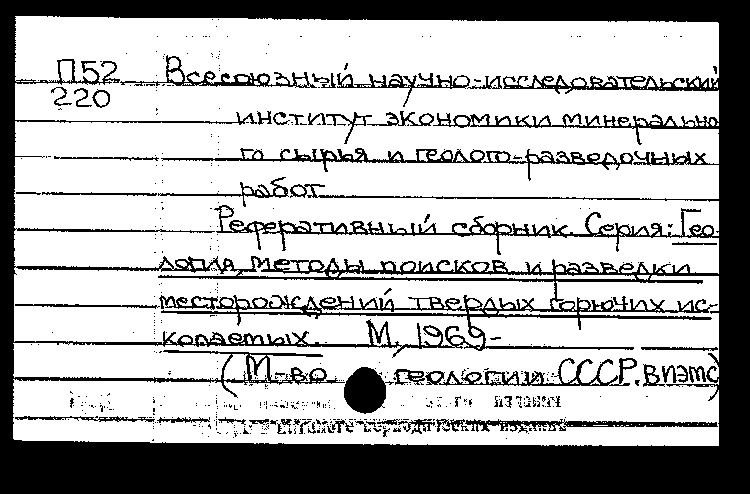 П52 Всесоюзный научно-исследовательский
220 институт экономики минерально-
го сырья и геолого-разведочных
работ
Реферативный сборник. Серия: Гео-
логия, методы поисков и разведки
месторождений твердых горючих ис-
копаемых. М., 1969-
(М-во геологии СССР. ВИЭМС)
издания
в каталоге периодических изданий